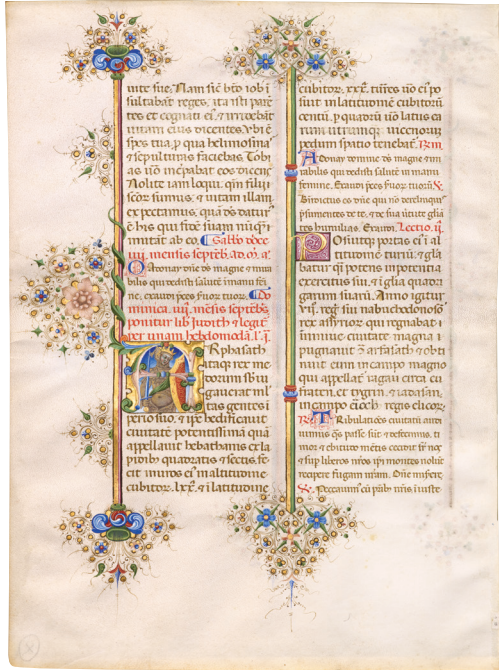 uite sue. Nam sic̄ bt̄o iob i
sultabāt reges. ita isti parē
tes et cognati ei᷒ irridebāt
uitam eius dicentes. Vbi ē
spes tua. p qua helimosinas
et sepulturas faciebas. Tobi
as uō increpabat eos dicens
Nolite itam loqui. qm̄ filii
sc̄or sumus. et uitam illam
expectamus. quā d̄s datur᷒
ē his qui fidē suam nunq̄
mutāt ab eo.
mensis septēb. ad
Adonay dn̄e d̄s magne et mira
bilis qui dedisti salutē in manu femi
ne. exaudi p̄ces seruor tuor. Do
minica mēsis septēbs
ponitur lib Judith et legit᷒
per unam hebdomodā. l. i
Arphasath
itaq rex me
dorum sb iu
gauerat mul
tas gentes i
perio suo. et ip̄e hedificauit
ciuitatē potentissimā quā
appellauit hebathanis ex la
pidibus quadratis et sectis. fe
cit muros ei᷒ in altitudinē
cubitor. lxx. et i latitudinē
cubitor. xxx. turres uō ei᷒ po
suit in altitudinē cubitorū
centū. p quadrū uō latus ea
rum utrumq uicenorum
pedum spatio tenebat᷒.
Adonay domine d̄s magne et mi
rabilis qui dedisti salutē in manu
femine. Exaudi p̄ces seruor tuorū.
Bn̄dictus es dn̄e qui nō derelinquis
p̄sumentes de te. et de sua uirtute glia
tes humilias. Exaudi. Lectio. ii.
Posuitq portas ei᷒ i al
titudinē turriū. et glia
batur q̄si potens in potentia
exercitus sui. et i glia quadri
garum suarū. Anno igitur
regni sui nabuchodonosor
rex assyrior. qui regnabat i
niniue ciuitate magna i
pugnauit ɔ̄ arfasath et obti
nuit eum in campo magno
qui appellat᷒ ragau circa eu
fraten. et tygrin. et iadasan.
in campo erioch regis elicor.
Tribulatiōes ciuitatū audi
uimus q̄s passe sūt et defecimus. ti
mor et ebitudo mētis cecidit sr̄ nos
et sup liberos nr̄os. ip̄i montes nolūt
recipere fugam nr̄am. Dn̄e miserere
Peccauim᷒ cū patrib᷒ nr̄is. iniuste